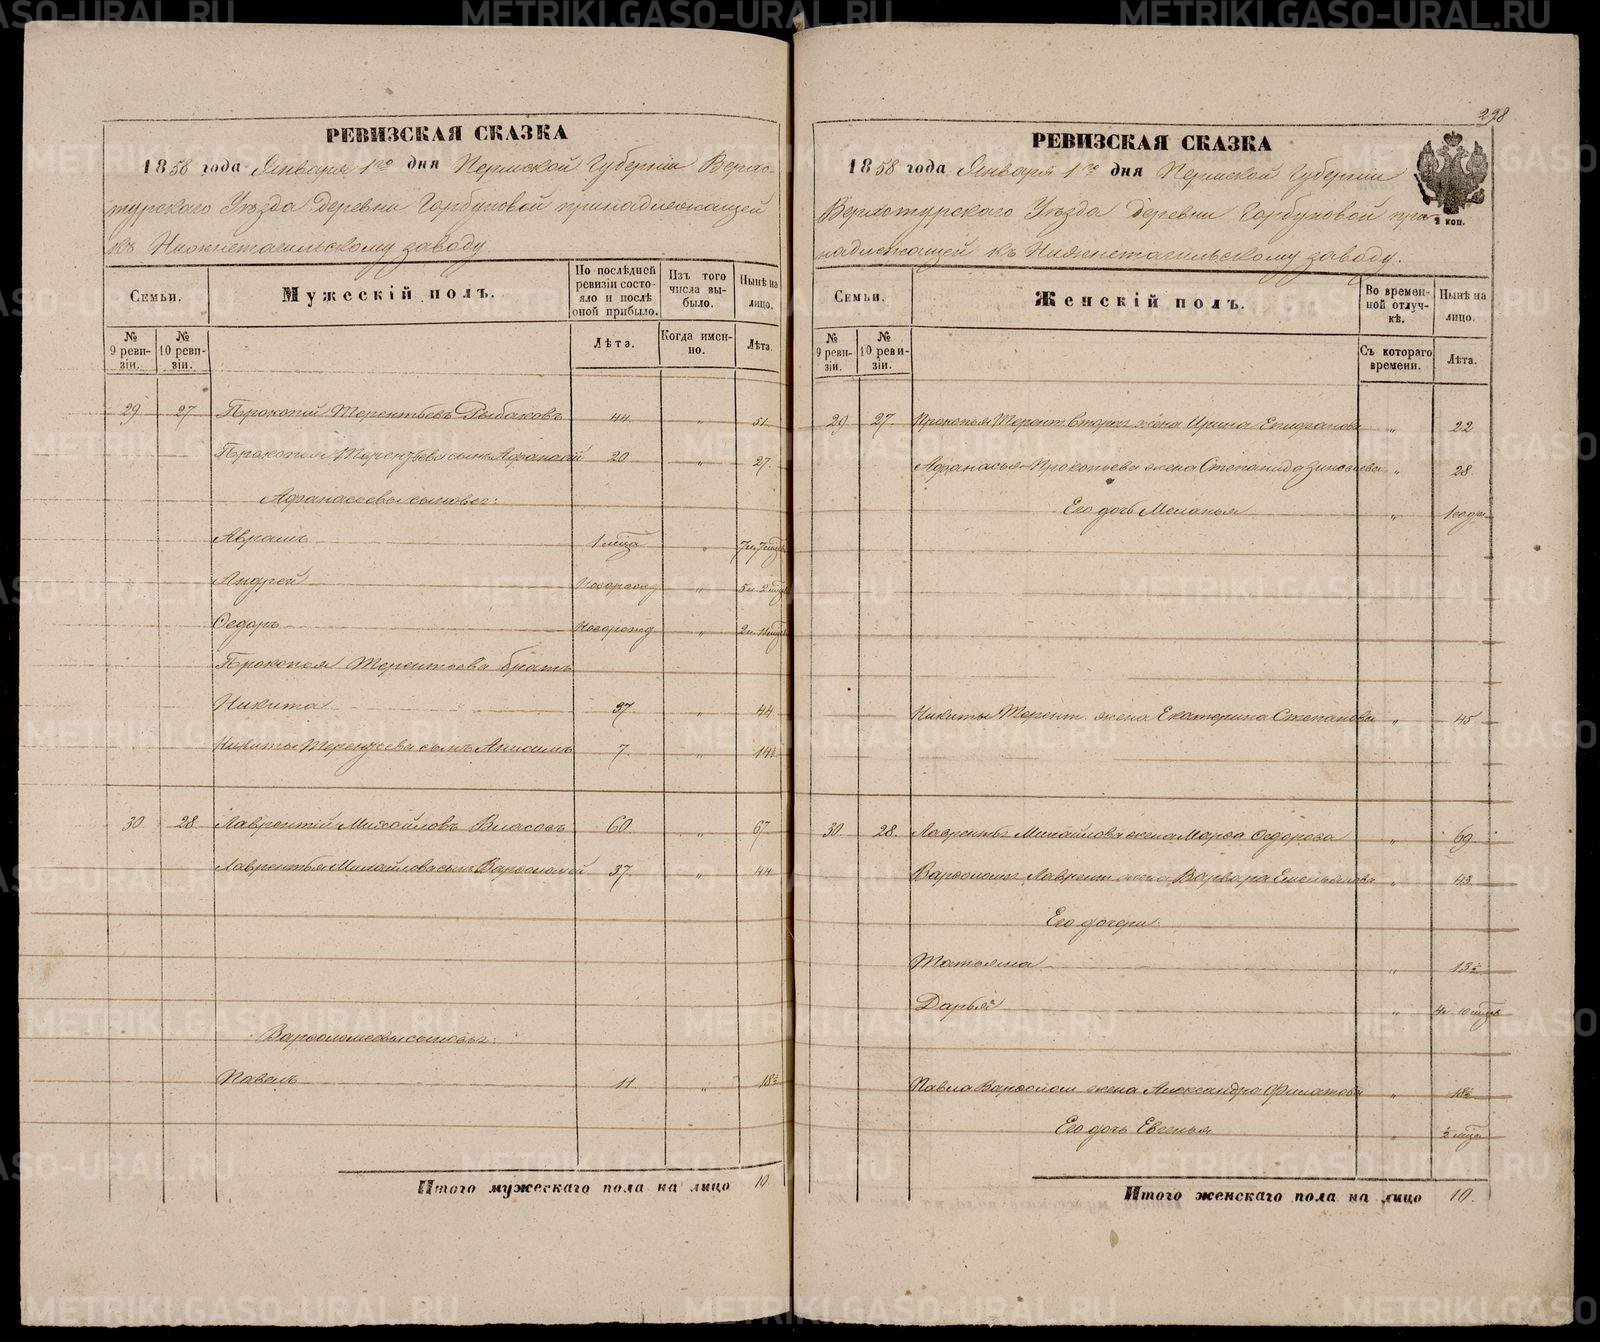 РЕВИЗСКАЯ СКАЗКА
1858 года Января 1го дня Пермской Губерніи Верхо-
турскаго Уѣзда Деревни Горбуновой принадлежащей
къ Нижнетагильскому заводу.
Семьи.
Мужескій полъ.
По послѣдней ревизіи состояло и послѣ оной прибыло.
Изъ того числа выбыло.
Нынѣ на лицо.
№ 9 ревизіи.
№ 10 ревизіи.
Лѣта.
Когда именно.
Лѣта.
29 27 Прокопій Терентьевъ Рыбаковъ 44 " 51
Прокопья Терентьева сынъ Афанасій 20 " 27
Афанасьевы сыновья:
Аврамъ 1 мѣца " 7л. 7 мцъ
Андрей Новорожд " 5л. 2 мцъ
Ѳедоръ Новорожд " 2л. 11 мцъ
Прокопья Терентьева братъ
Никита 37 " 44
Никиты Терентьева сынъ Анисимъ 7 " 14½
30 28 Лаврентій Михайловъ Власовъ 60 " 67
Лаврентья Михайлова сынъ Варѳоломей 37 " 44
Варѳоломеевы сыновья:
Павелъ 11 " 18½
Итого мужескаго пола на лицо 10
298
РЕВИЗСКАЯ СКАЗКА
1858 года Января 1го дня Пермской Губерніи
Верхотурскаго Уѣзда Деревни Горбуновой при-
надлежащей къ Нижнетагильскому заводу.
2 коп.
Семьи.
Женскій полъ.
Во временной отлучкѣ.
Нынѣ на лицо.
№ 9 ревизіи.
№ 10 ревизіи.
Съ котораго времени.
Лѣта.
29 27 Прокопья Терент. вторая жена Ирина Епифанова " 22
Афанасья Прокопьева жена Степанида Зиновьева " 28
Его дочь Меланья " 1 года
Никиты Терент. жена Екатерина Степанова " 45
30 28 Лаврентья Михайлова жена Марѳа Ѳедорова " 69
Варѳоломея Лаврент. жена Варвара Емельянова " 43
Его дочери:
Татьяна " 13½
Дарья " 4л. 10 мцъ
Павла Варѳолом жена Александра Филатова " 18½
Его дочь Евгенья " ½ мца
Итого женскаго пола на лицо 10.
METRIKI.GASO-URAL.RU